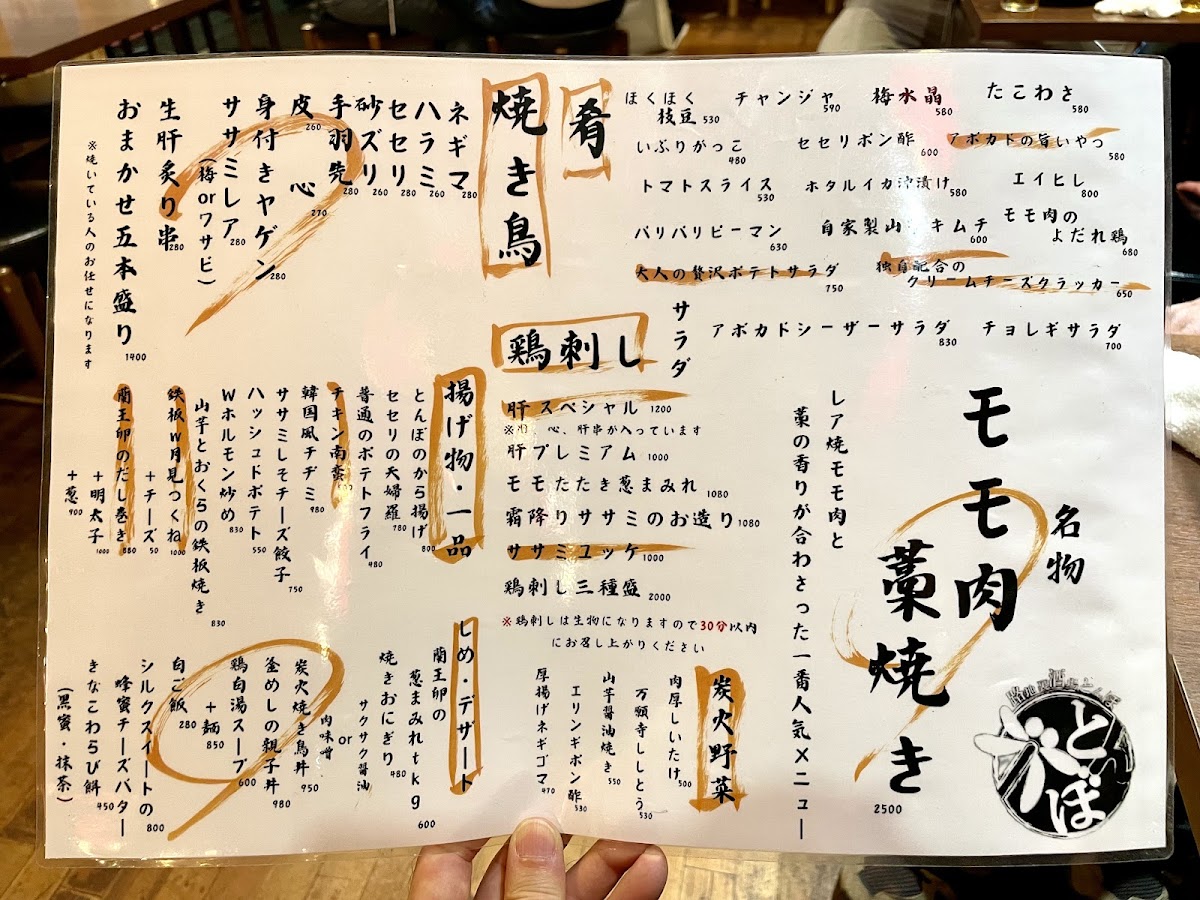 名物
モモ肉
藁焼き
2500
レア焼モモ肉と
藁の香りが合わさった一番人気メニュー
とんぼ
肴
ほくほく
枝豆 530
チャンジャ 590
梅水晶 580
たこわさ 580
いぶりがっこ 480
セセリポン酢 600
アボカドの旨いやつ 580
トマトスライス 530
ホタルイカ沖漬け 580
エイヒレ 800
パリパリピーマン 630
自家製山 キムチ 600
モモ肉の
よだれ鶏 680
大人の贅沢ポテトサラダ 750
独自配合の
クリームチーズクラッカー 650
サラダ
アボカドシーザーサラダ 830
チョレギサラダ 700
焼き鳥
ネギマ 280
ハラミ 260
セセリ 280
砂ズリ 260
手羽先 280
皮 260
心 270
身付きヤゲン 280
ササミレア 280
(梅orワサビ)
生肝炙り串 280
おまかせ五本盛り 1400
※焼いている人のお任せになります
鶏刺し
肝スペシャル 1200
心、肝串が入っています
肝プレミアム 1000
モモたたき葱まみれ 1080
霜降りササミのお造り 1080
ササミユッケ 1000
鶏刺し三種盛 2000
※鶏刺しは生物になりますので30分以内
にお召し上がりください
揚げ物・一品
とんぼのから揚げ 800
セセリの天婦羅 780
普通のポテトフライ 480
チキン南蛮
韓国風チヂミ 980
ササミしそチーズ餃子 750
ハッシュドポテト 550
Wホルモン炒め 830
山芋とおくらの鉄板焼き 830
鉄板w月見つくね 1000
+チーズ 50
蘭王卵のだし巻き 880
+明太子 1000
+葱 900
炭火野菜
肉厚しいたけ 500
万願寺ししとう 530
山芋醤油焼き 550
エリンギポン酢 530
厚揚げネギゴマ 470
しめ・デザート
蘭王卵の
葱まみれtkg 600
焼きおにぎり 480
サクサク醤油
or
肉味噌
炭火焼き鳥丼 950
釜めしの親子丼 980
鶏白湯スープ 600
+麺 850
白ご飯 280
シルクスイートの
蜂蜜チーズバター 800
きなこわらび餅 450
(黒蜜・抹茶)